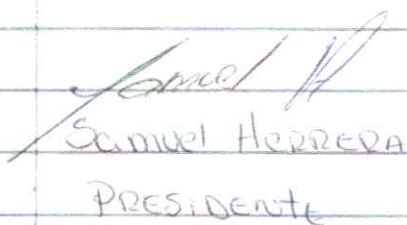 Samuel H
Samuel HERRERA
PRESIDENTE